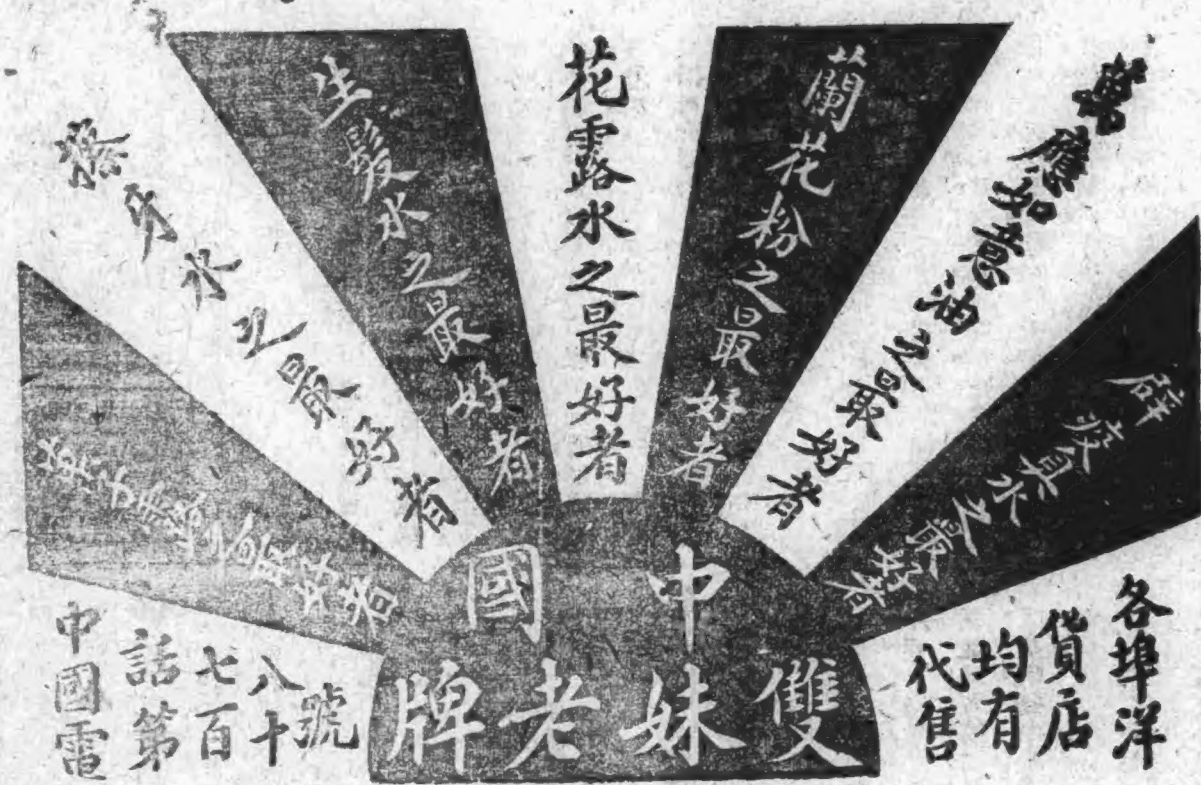 辟疫臭水之最好者
萬應如意油之最好者
蘭花粉之最好者
花露水之最好者
生髮水之最好者
擦牙水之最好者
最好者
中國
雙妹老牌
各埠洋
貨店
均有
代售
中國電
話第
七百
八十
號